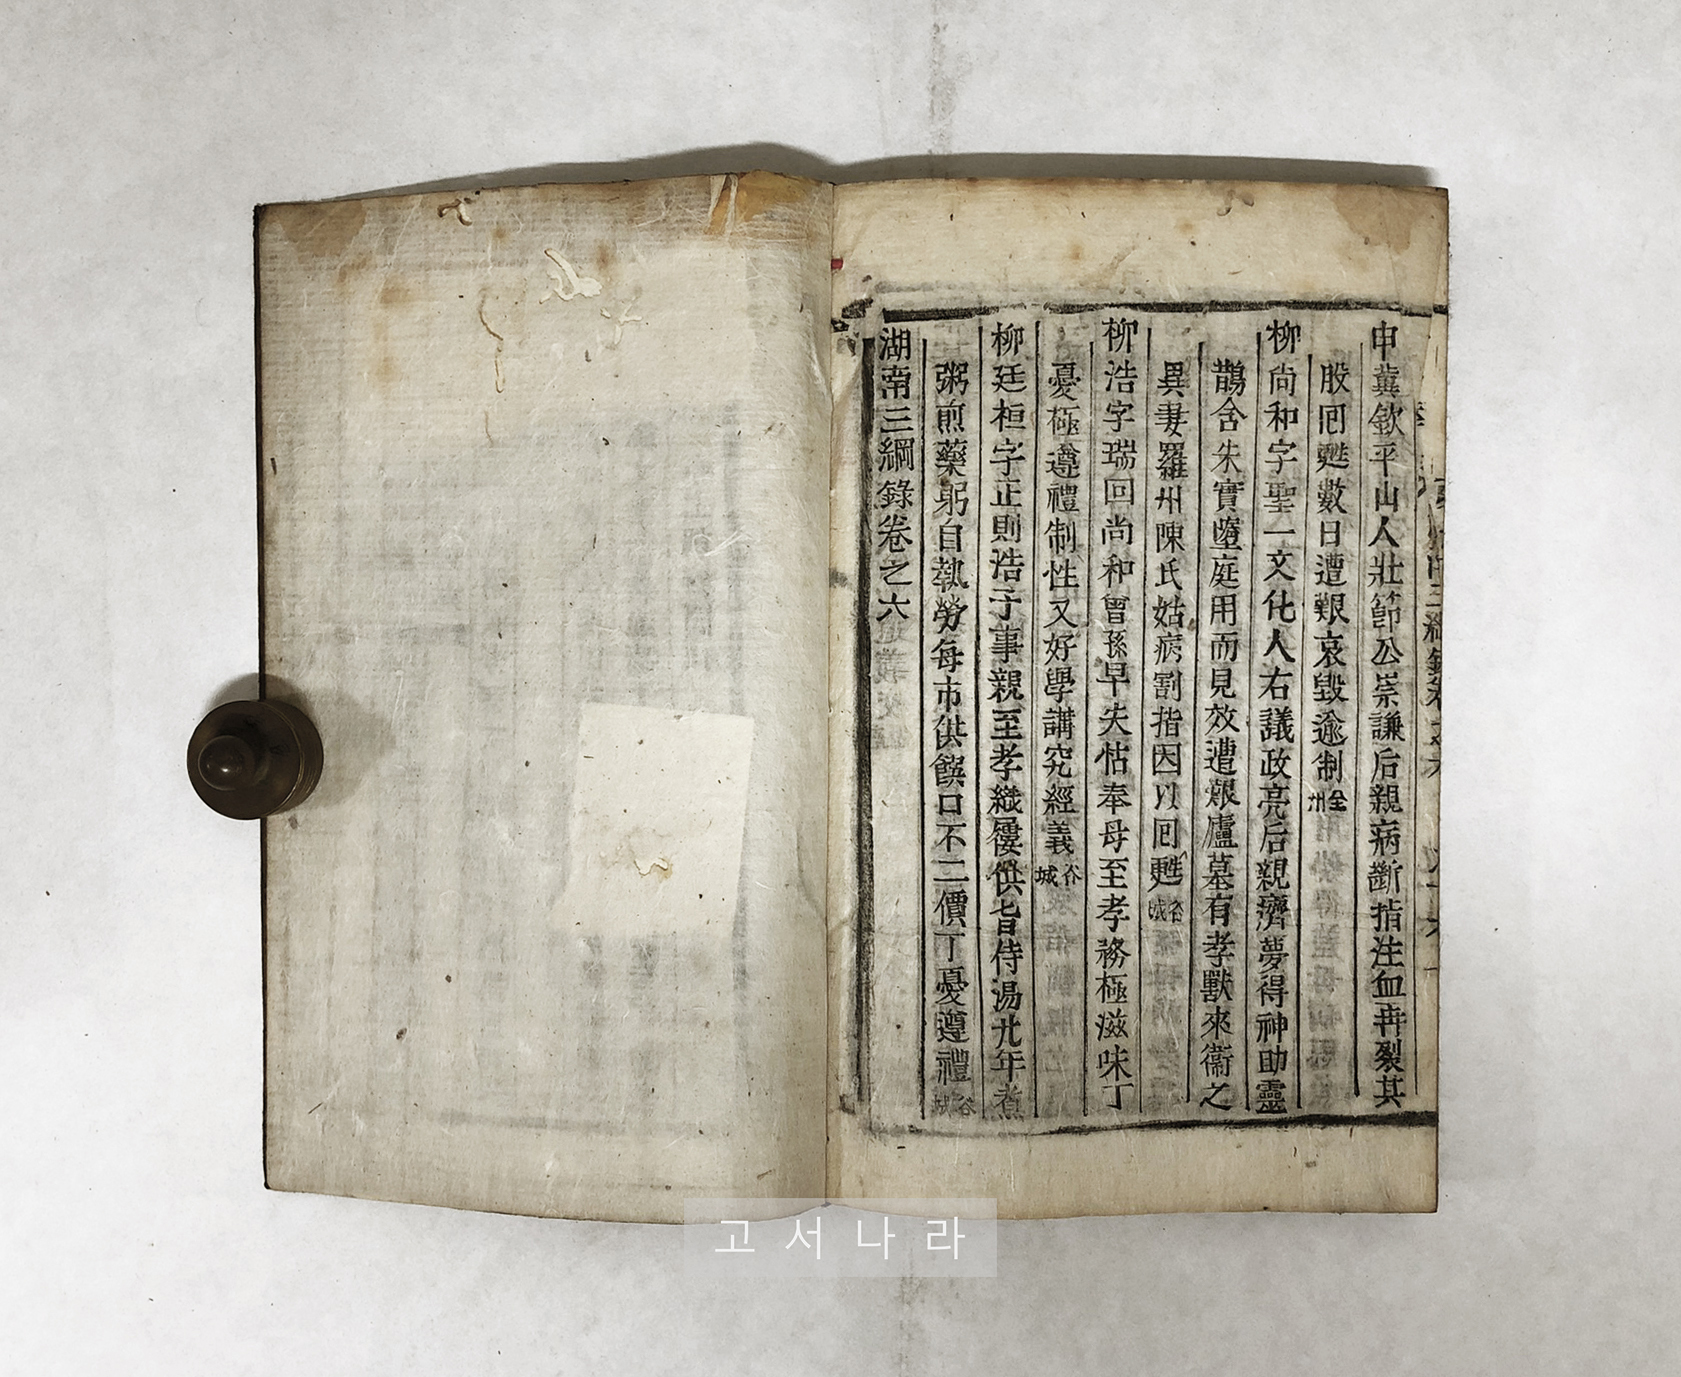 申冀欽平山人壯節公崇謙后親病斷指注血再裂其
股囘甦數日遭艱哀毀逾制全州
柳尙和字聖一文化人右議政亮后親癠夢得神助靈
鵲含朱實墮庭用而見效遭艱廬墓有孝獸來衛之
異妻羅州陳氏姑病割指因以囘甦谷城
柳浩字瑞回尙和曾孫早失怙奉母至孝務極滋味丁
憂極遵禮制性又好學講究經義谷城
柳廷桓字正則浩子事親至孝織屨供旨侍湯九年煮
粥煎藥躬自執勞每市供饌口不二價丁憂遵禮谷城
湖南三綱錄卷之六
고서나라